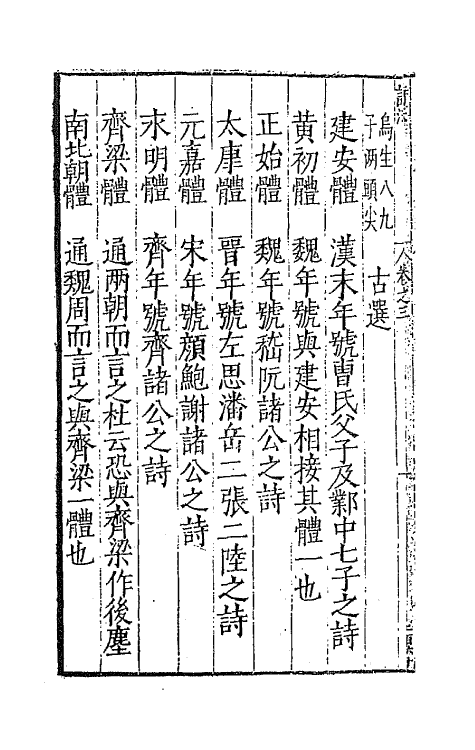 卷之三
烏生八九
子兩頭尖
古選
建安體 漢末年號曹氏父子及鄴中七子之詩
黃初體 魏年號與建安相接其體一也
正始體 魏年號嵇阮諸公之詩
太康體 晉年號左思潘岳二張二陸之詩
元嘉體 宋年號顏鮑謝諸公之詩
永明體 齊年號齊諸公之詩
齊梁體 通两朝而言之杜云恐與齊梁作後塵
南北朝體 通魏周而言之與齊梁一體也